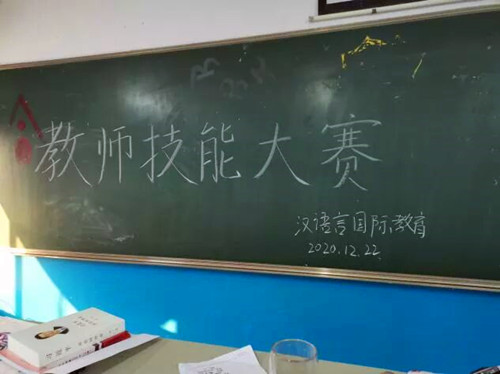 教师技能大赛
汉语言国际教育
2020.12.22